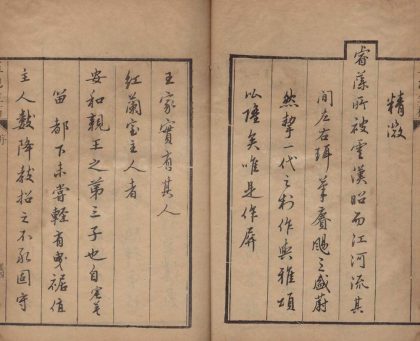 精微
睿藻所被雲漢昭而江河流其
間左右珥筆賡颺之盛蔚
然摯一代之制作與雅頌
以隆矣唯是作屏
王家實其人
紅蘭室主人者
安和親王之第三子也自
留都下未嘗輕有曳裾值
主人降招之不固守